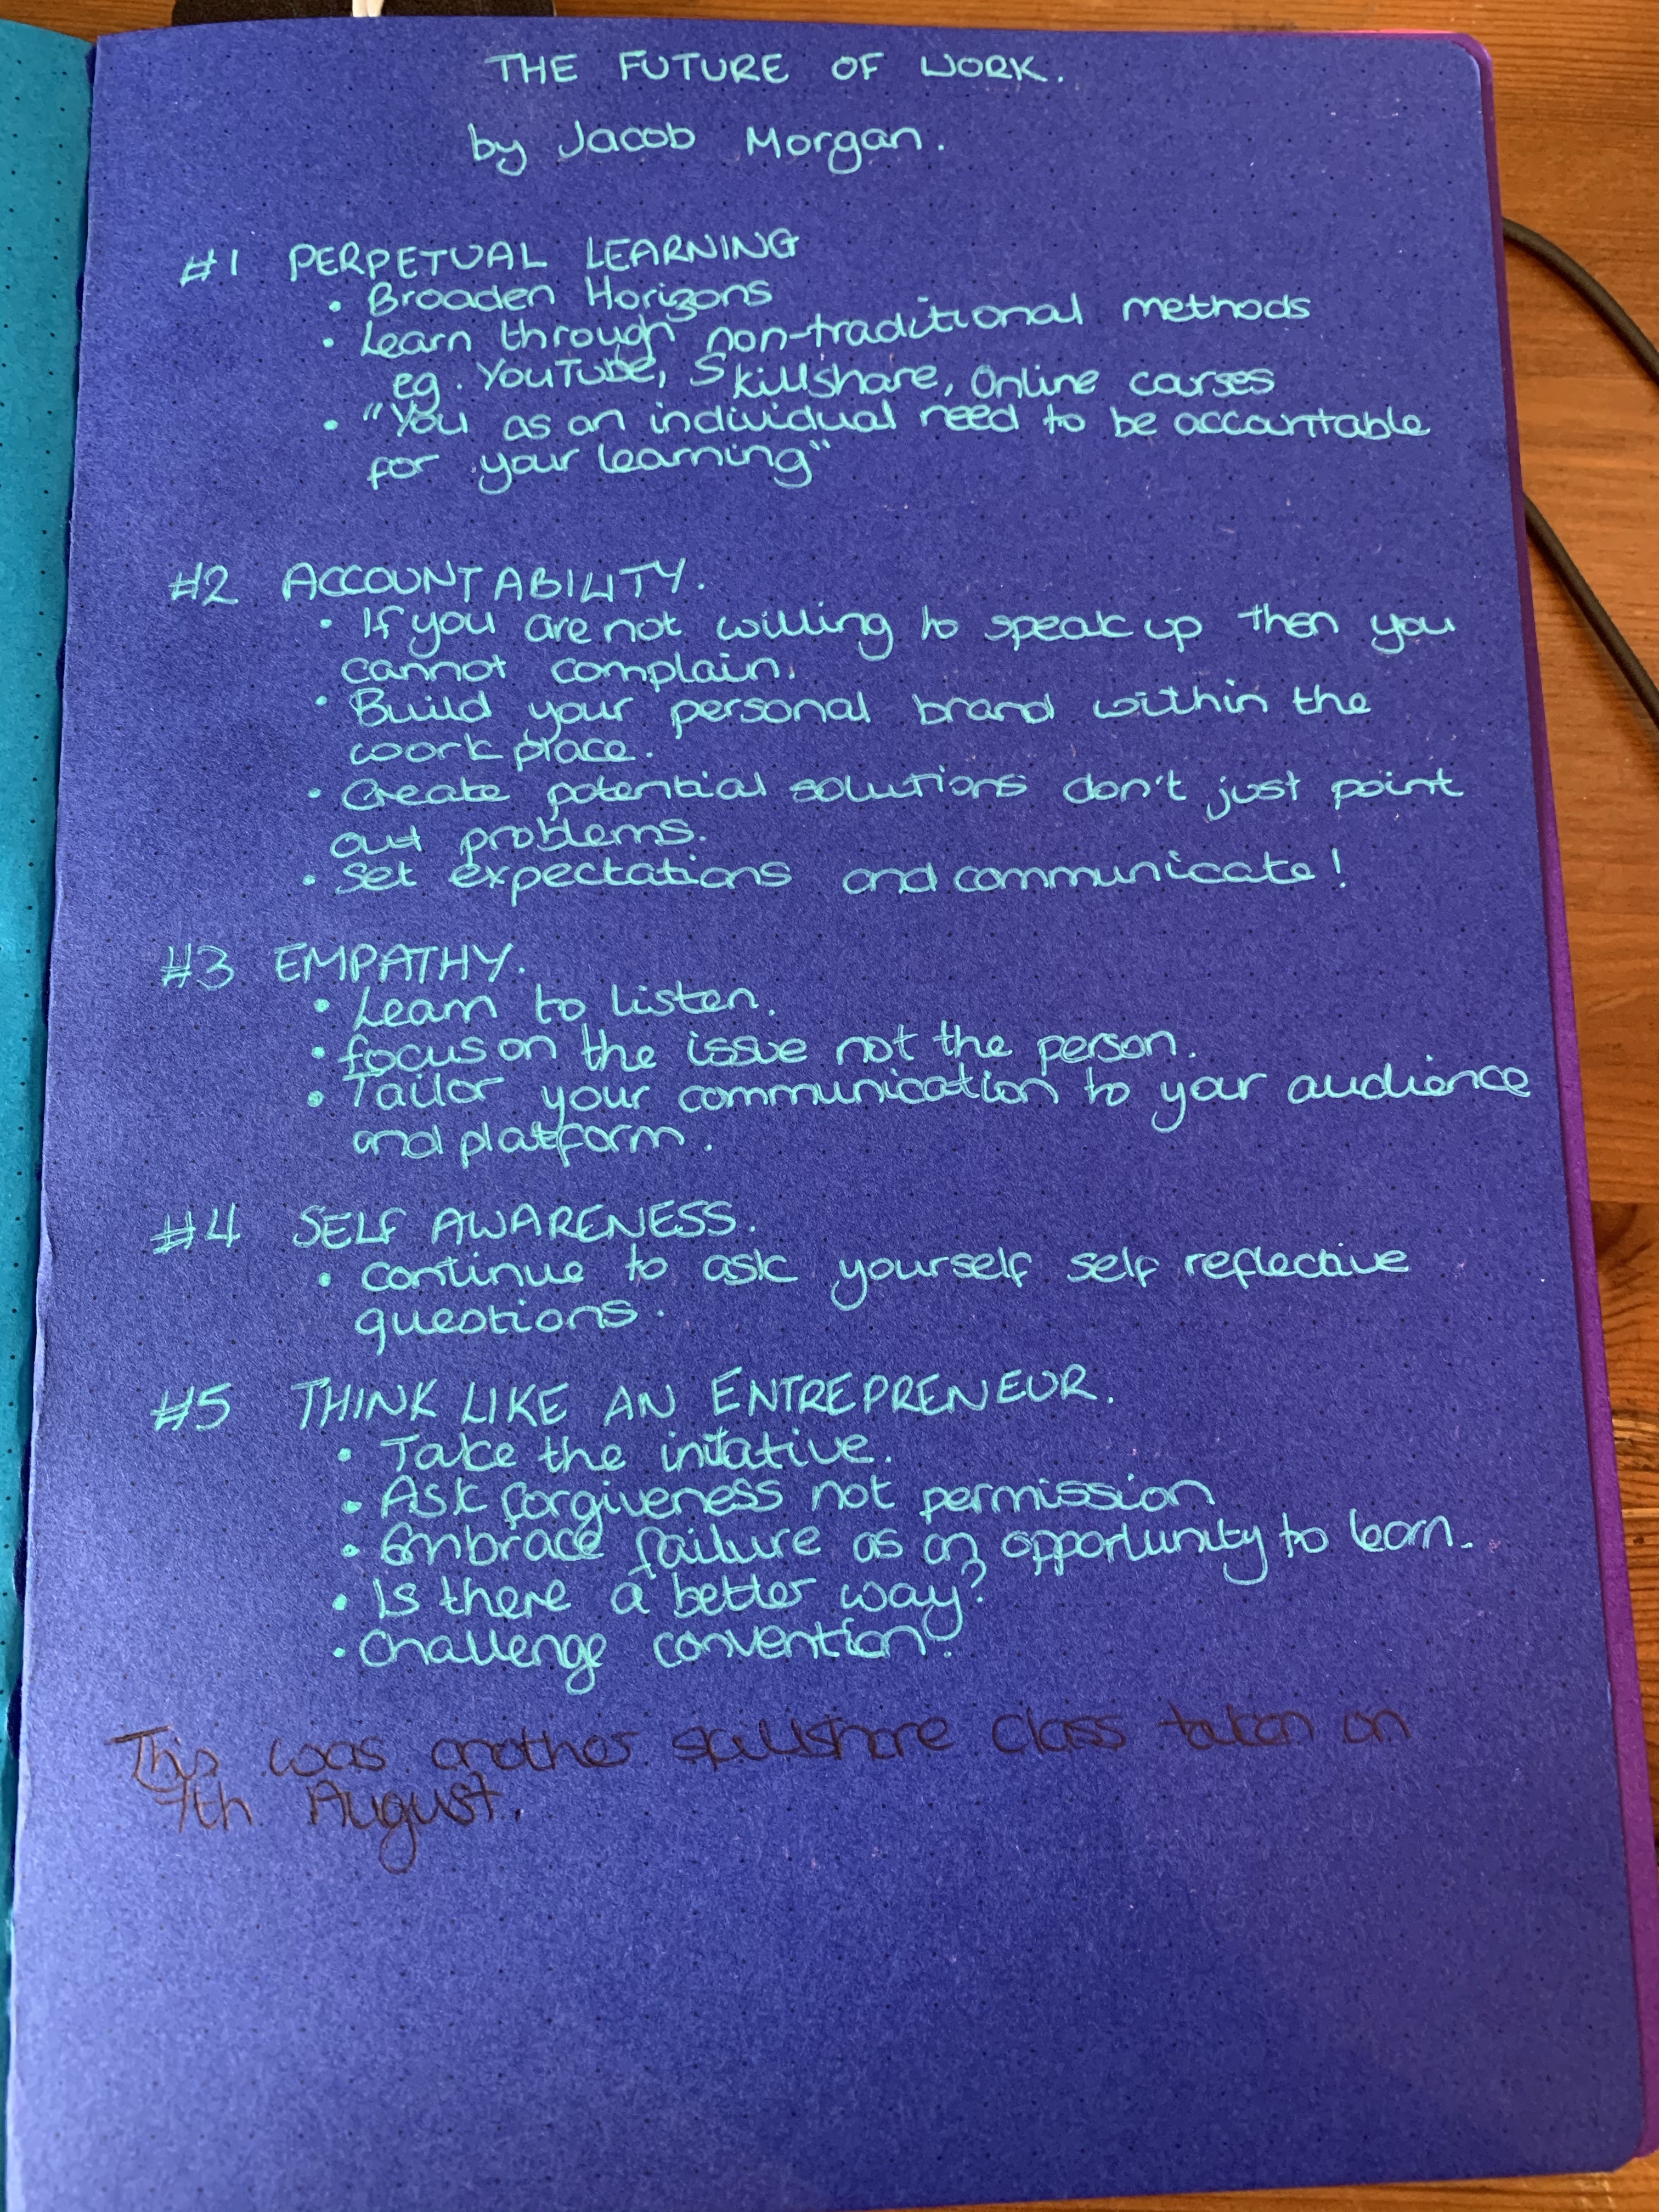 THE FUTURE OF WORK.
by Jacob Morgan.
#1 PERPETUAL LEARNING
• Broaden Horizons
• Learn through non-traditional methods
eg. YouTube, Skillshare, Online courses
• "You as an individual need to be accountable
for your learning"
#2 ACCOUNTABILITY.
• If you are not willing to speak up then you
cannot complain.
• Build your personal brand within the
workplace.
• Create potential solutions don't just point
out problems.
• Set expectations and communicate!
#3 EMPATHY.
• Learn to listen.
• focus on the issue not the person.
• Tailor your communication to your audience
and platform.
#4 SELF AWARENESS.
• Continue to ask yourself self reflective
questions.
#5 THINK LIKE AN ENTREPRENEUR.
• Take the initative.
• Ask forgiveness not permission
• Embrace failure as an opportunity to learn.
• Is there a better way?
• Challenge convention?
This was another skillshare class taken on
7th August.